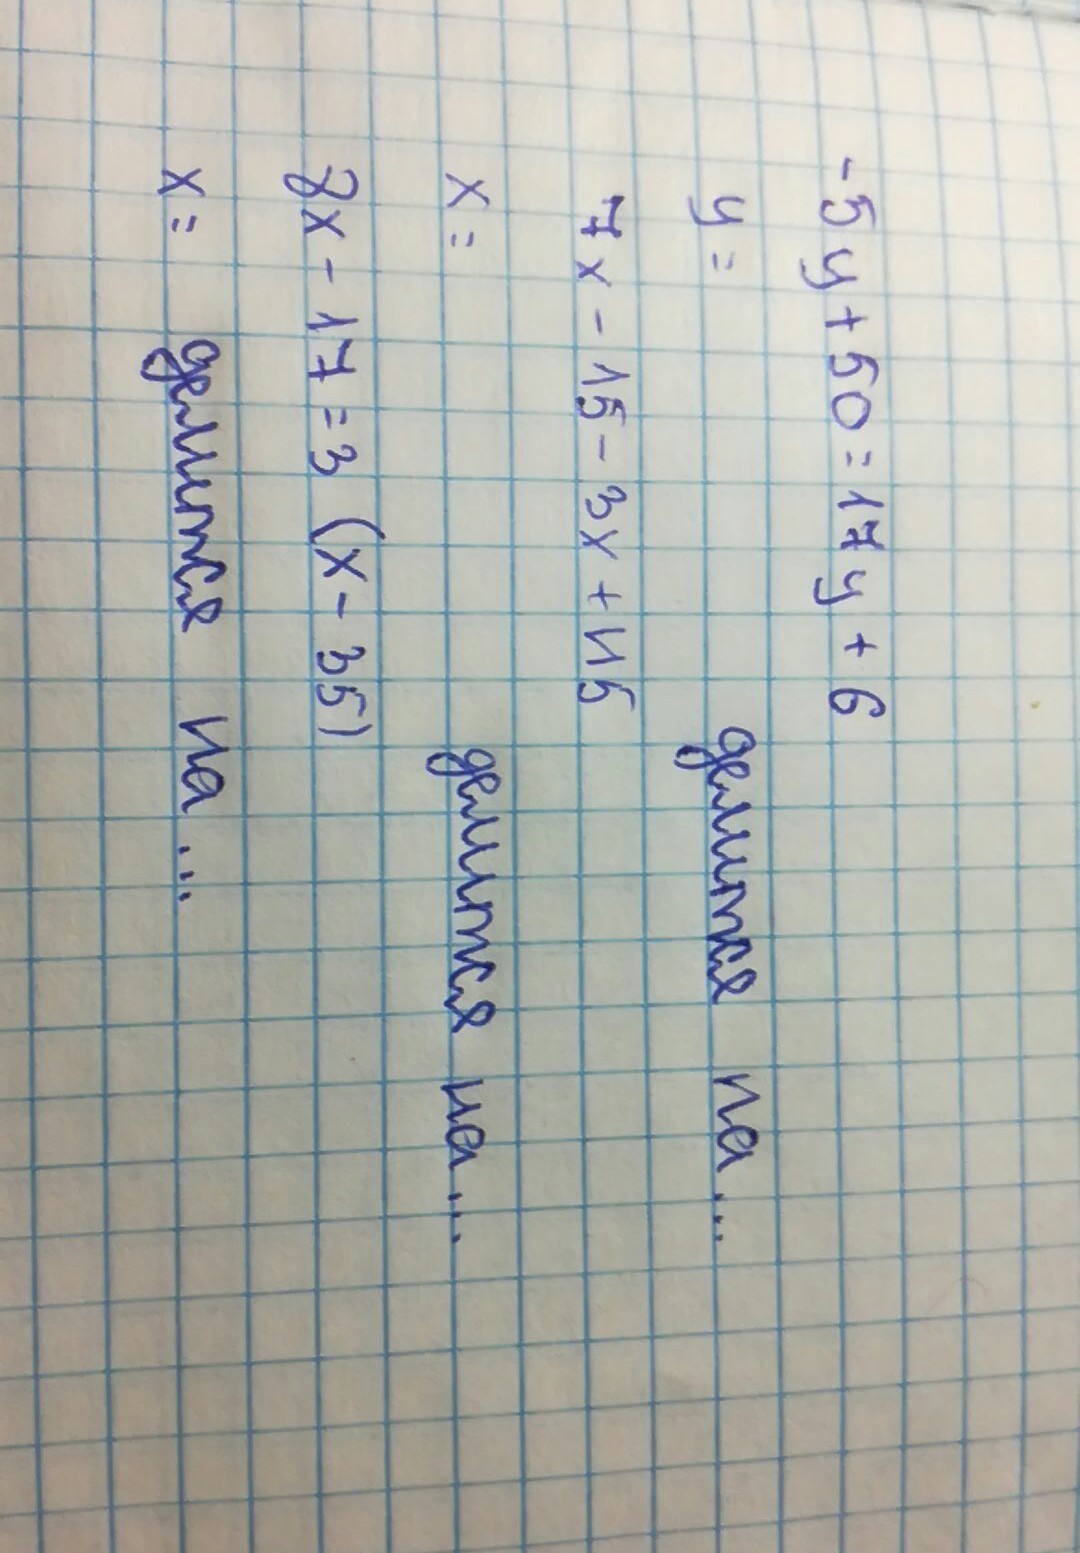 -5y+50=17y+6
y= делится на...
7x-15-3x+45
x= делится на...
2x-17=3 (x-35)
x= делится на...